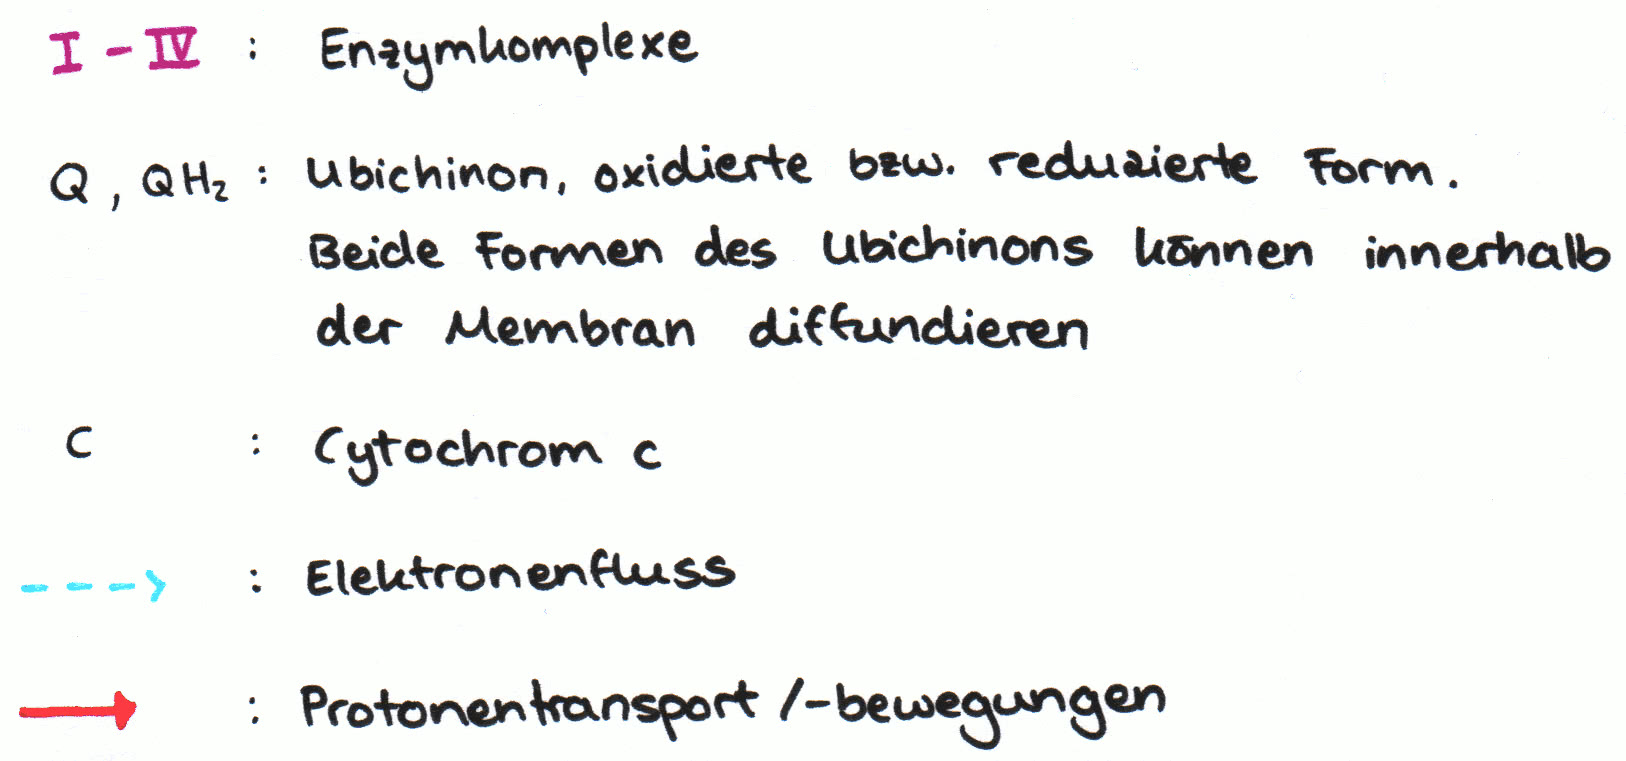 I - IV : Enzymkomplexe
Q, QH₂ : Ubichinon, oxidierte bzw. reduzierte Form.
Beide Formen des Ubichinons können innerhalb
der Membran diffundieren
C : Cytochrom c
: Elektronenfluss
: Protonentransport /-bewegungen